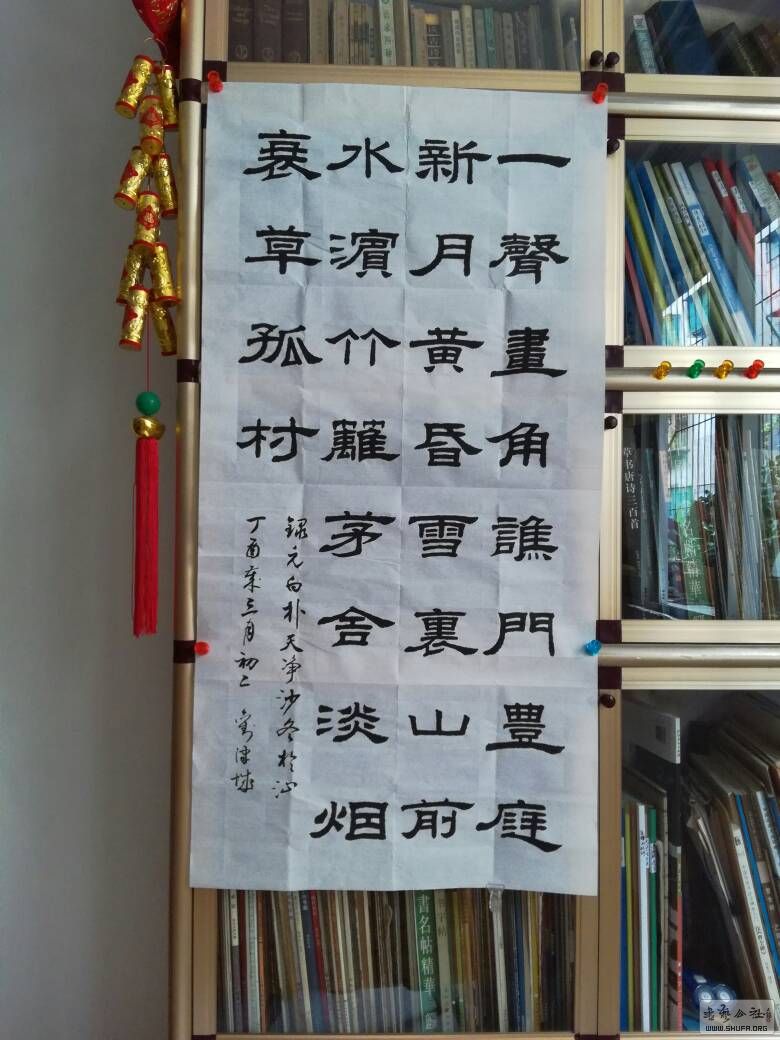 一聲畫角譙門豊庭
新月黃昏雪裏山前
水濱竹籬茅舍淡烟
衰草孤村
録元白朴天净沙冬於沁
丁酉年三月初二
草书唐诗三百首
書名帖精華
WWW.SHUFA.ORG